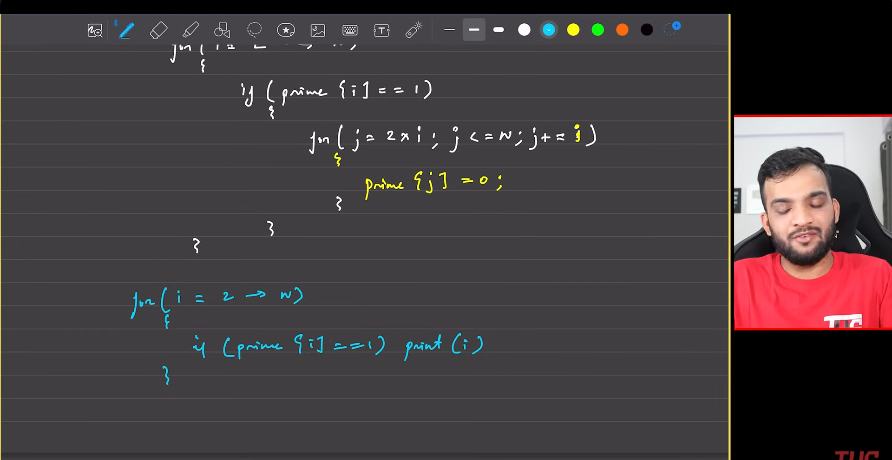 for( i = 2 → N)
{
if (prime [i] == 1)
{
for( j = 2 * i ; j <= N; j += i )
{
prime [j] = 0 ;
}
}
}
for( i = 2 → N)
{
if (prime [i] == 1) print (i)
}
T
TUF